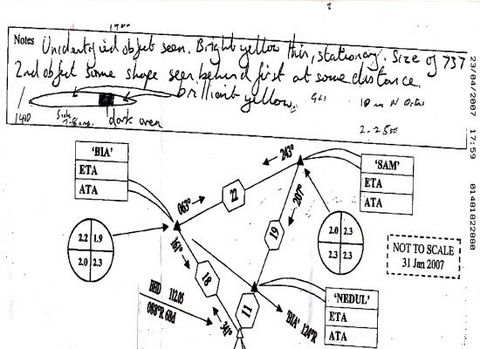 Notes Unidentified object seen. Bright yellow thin, stationary. Size of 737
2nd object same shape seen behind first at some distance.
brilliant yellow.
dark area
1410
'BIA'
ETA
ATA
'SAM'
ETA
ATA
243°
063°
22
207°
19
2.2 1.9
2.0 2.3
2.0 2.3
2.3 2.3
161°
18
341°
11
NOT TO SCALE
31 Jan 2007
112.05
'BIA' 124°R
'NEDUL'
ETA
ATA
23/04/2007 17:59 01481822880